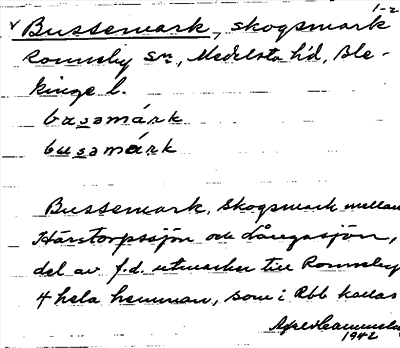 1-2
v Bussemark, skogsmark
Ronneby sn, Medelsta hd, Ble-
kinge l.
busamárk
busamárk
Bussemark, skogsmark mellan
Härstorpssjön och Långasjön,
del av f.d. utmarken till Ronneby
4 hela hemman, som i Rbb kallas
1942